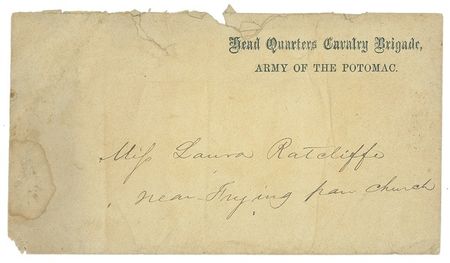 Head Quarters Cavalry Brigade,
ARMY OF THE POTOMAC.
Miſs Laura Ratcliffe
near Frying pan church